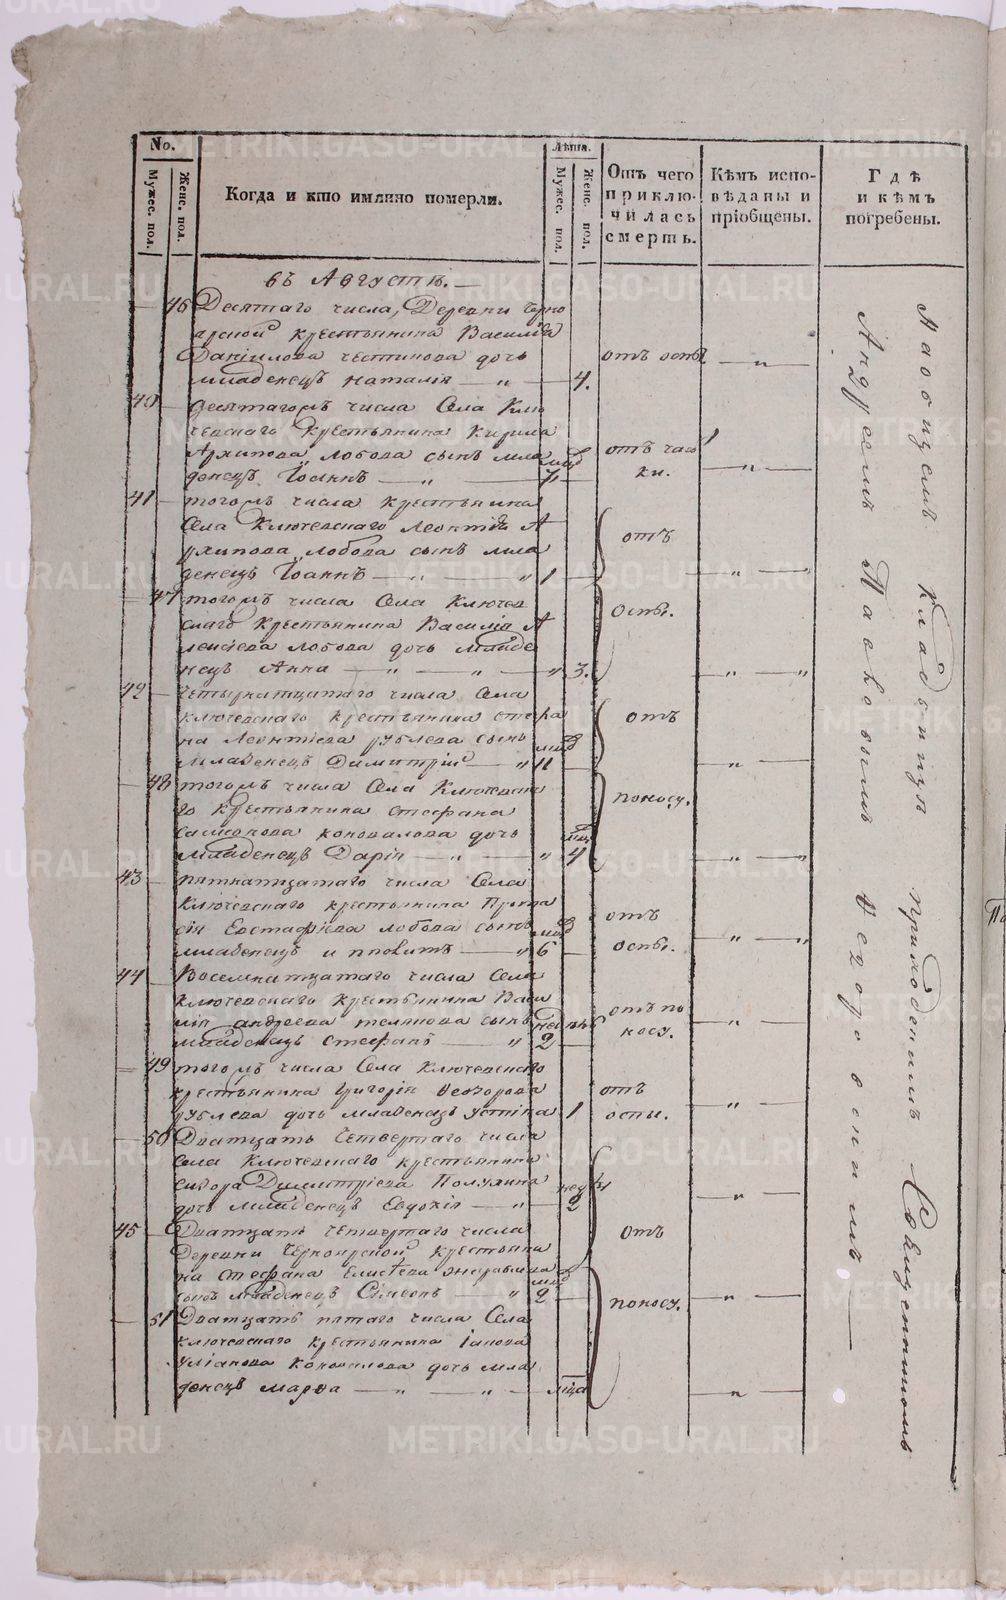 No.
Мужес. пол.
Женс. пол.
Когда и кто имянно померли.
Лѣта.
Мужес. пол.
Женс. пол.
Отъ чего приклю-чилась смерть.
Кѣмъ испо-вѣданы и пріобщены.
Гдѣ и кѣмъ погребены.
въ Августѣ.
46 Десятаго числа, Деревни Черно
ярской крестьянина Василія
Даніилова дочь отъ оспы
младенецъ Наталія — „ — 4.
40 десятагожъ числа Села Клю
чевскаго крестьянина Кирила
Архипова Лобова сынъ мла отъ чахо
денецъ Іоаннъ — „ — ки.
41 тогожъ числа крестьянина
Села Ключевскаго Леонтія А
рхипова Лобова сынъ мла отъ
денецъ Іоаннъ — „ — „ 1
47 тогожъ числа Села Ключев
скаго крестьянина Василія А оспы.
лексіева Лобова дочь младе
нецъ Анна — „ — „ — „ 3.
42 Четырнатцатаго числа Села
Ключевскаго крестьянина Стефа отъ
на Леонтіева Рублева сынъ
младенецъ Димитрій — „ 11
48 тогожъ числа Села Ключевска
го крестьянина Стефана поносу.
Самсонова Коновалова дочь
младенецъ Дарія — „ — „ 4
43 пятнатцатаго числа Села
Ключевскаго крестьянина Прота
сія Евстафіева Лобова сынъ отъ
младенецъ Ипполитъ — „ 6 оспы.
44 Восемнатцатаго числа Села
Ключевскаго крестьянина Васи
лія Андреева сынъ отъ по
младенецъ Стефанъ — „ 2 носу.
49 тогожъ числа Села Ключевскаго
крестьянина Григорія Ѳеодорова отъ
Рублева дочь младенецъ Устінія 1 оспы.
50 Дватцать четвертаго числа
Села Ключевскаго крестьянина
Сидора Димитріева
дочь младенецъ Евдокія — „ 2
45 Дватцать четвертаго числа отъ
Деревни Черноярской крестьяни
на Стефана Елисѣева
сынъ младенецъ Сімеонъ — „ 2 поносу.
51 Дватцать пятаго числа Села
Ключевскаго крестьянина Іакова
Уліанова Коновалова дочь мла
денецъ Марѳа — „ — „ —
На общемъ кладбищи приходскимъ Священникомъ
Андреемъ Павловымъ
METRIKI.GASO-URAL.RU